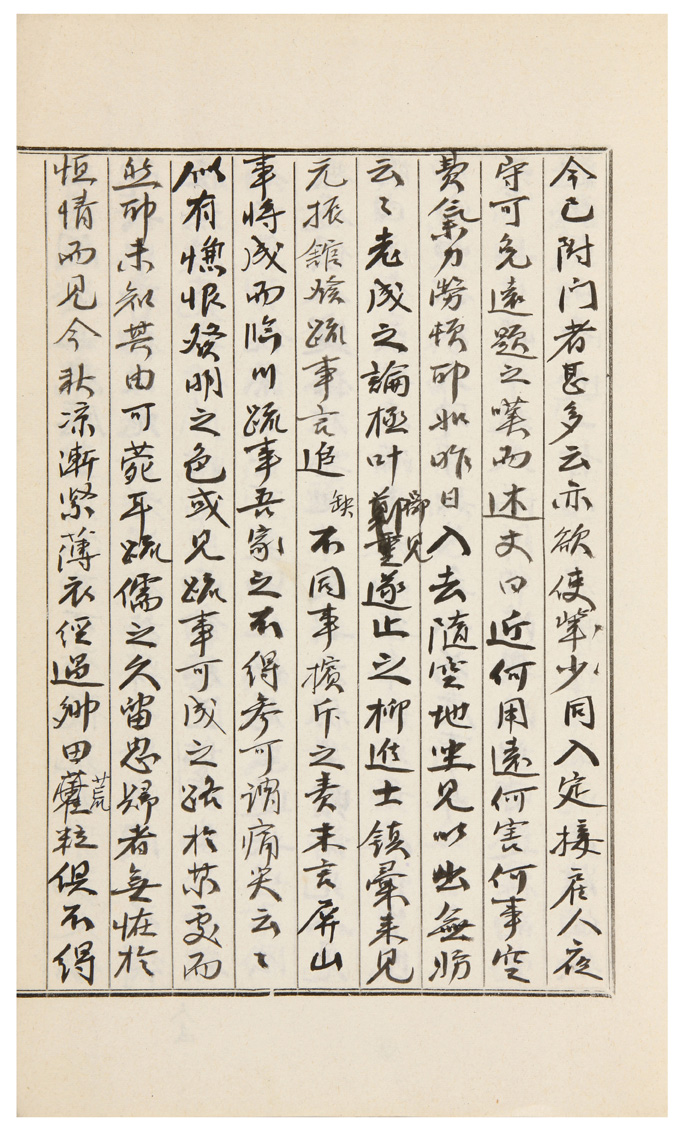 今已附門者甚多云亦欲使輩少同入定接雇人夜
守可免遠題之嘆而述丈曰近何用遠何害何事空
費氣力勞頓耶如昨日入去隨空地坐見以出無妨
云云老成之論極叶鄙見遂止之柳進士鎮彙來見
元振館發疏事言追缺不同事擯斥之責來言屏山
事將成而臨川疏事吾家之不得參可謂痛哭云云
似有憔恨發明之色或見疏事可成之路於某處而
然耶未知其由可菀耳疏儒之久留思歸者無怪於
恒情而見今秋凉漸緊薄衣經過鄉田荒粒俱不得